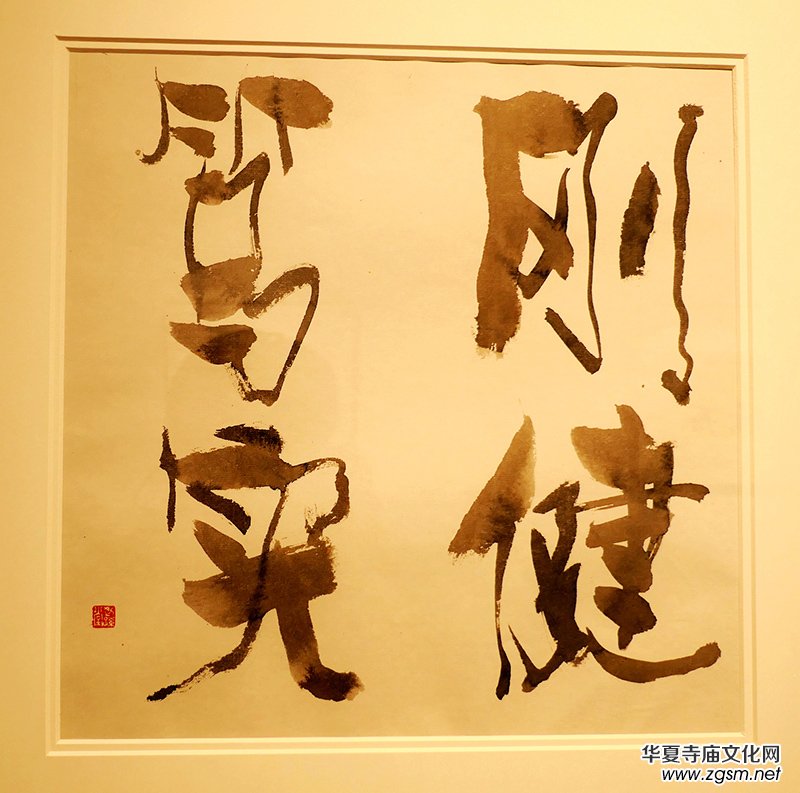 刚健
笃实
华夏寺庙文化网
www.zgsm.net